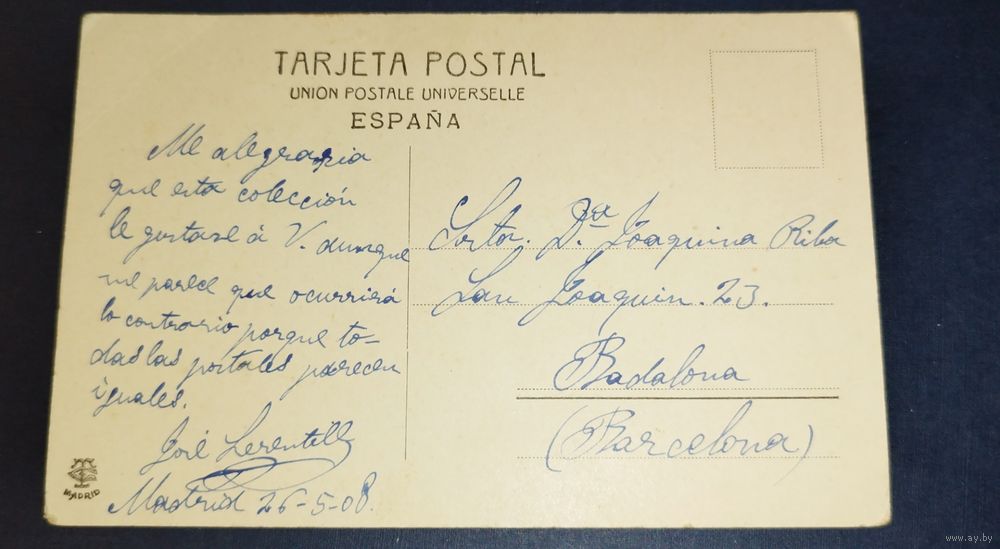 TARJETA POSTAL
UNION POSTALE UNIVERSELLE
ESPAÑA
Me alegraria
que esta colección
le gustase á V. aunque
me parece que ocurrirá
lo contrario porque to-
das las postales parecen
iguales.
José
Madrid 26-5-08.
MADRID
Srta. Dª Joaquina Riba
San Joaquin. 23.
Badalona
(Barcelona)
www.ay.by